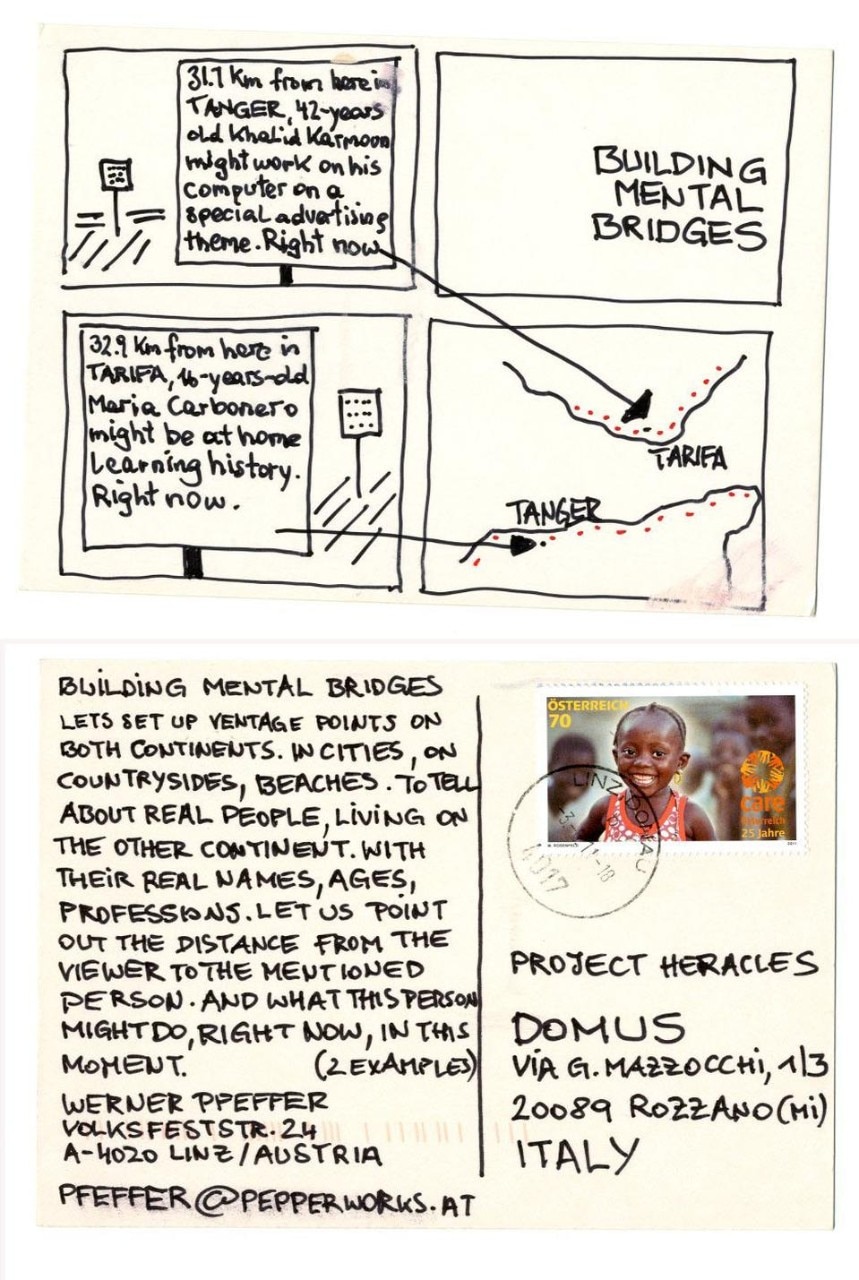 31.7 Km from here in
TANGER, 42-years
old Khalid Karmoon
might work on his
computer on a
special advertising
theme. Right now
BUILDING
MENTAL
BRIDGES
32.9 Km from here in
TARIFA, 16-years-old
Maria Carbonero
might be at home
Learning history.
Right now.
TARIFA
TANGER
BUILDING MENTAL BRIDGES
LETS SET UP VENTAGE POINTS ON
BOTH CONTINENTS. IN CITIES, ON
COUNTRYSIDES, BEACHES. TO TELL
ABOUT REAL PEOPLE, LIVING ON
THE OTHER CONTINENT. WITH
THEIR REAL NAMES, AGES,
PROFESSIONS. LET US POINT
OUT THE DISTANCE FROM THE
VIEWER TO THE MENTIONED
PERSON. AND WHAT THIS PERSON
MIGHT DO, RIGHT NOW, IN THIS
MOMENT. (2 EXAMPLES)
WERNER PFEFFER
VOLKSFESTSTR. 24
A-4020 LINZ/AUSTRIA
PFEFFER@PEPPERWORKS.AT
ÖSTERREICH
70
care
österreich
25 Jahre
LINZ DONAU
4017
PROJECT HERACLES
DOMUS
VIA G. MAZZOCCHI, 1/3
20089 ROZZANO (Mi)
ITALY